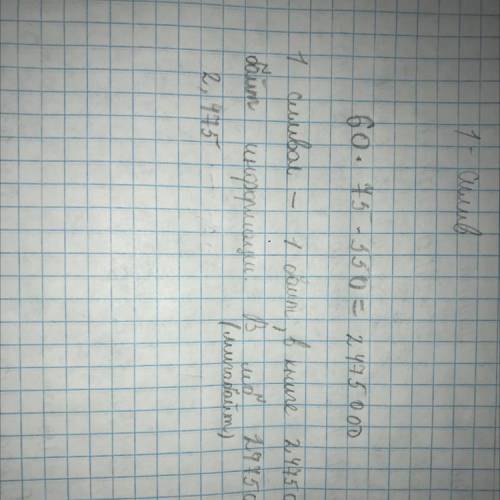 1 - симв
60 · 75 · 550 = 2475000
1 символ - 1 байт, в книге 24750
байт информации. В мб 24750
(мегабайт)
2,475